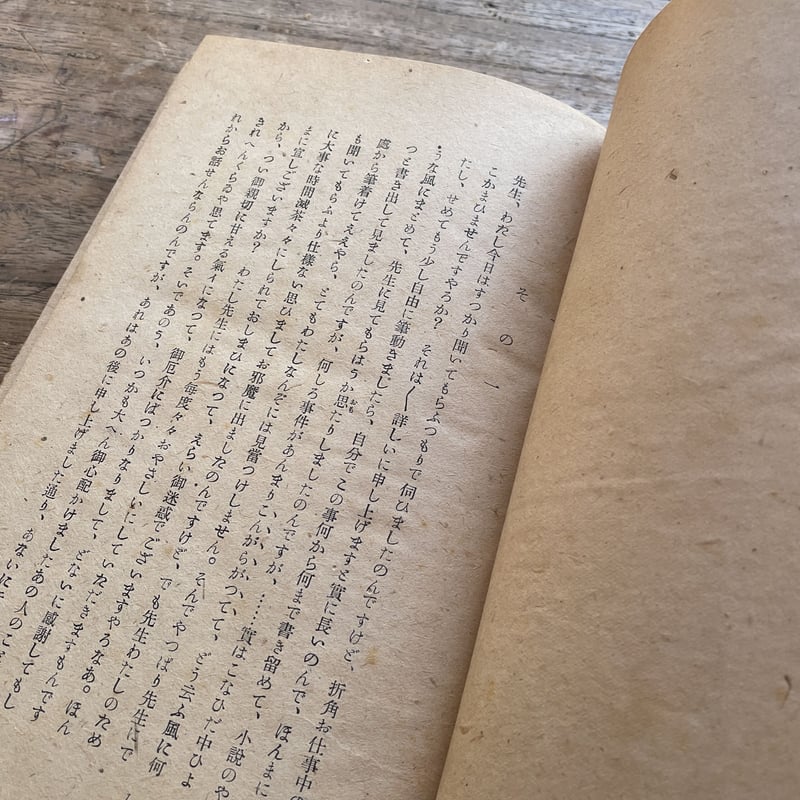 その一
先生、わたし今日はすつかり聞いてもらふつもりで伺ひましたのんですけど、折角お仕事中の
こかまひませんですやろか? それは〱詳しいに申し上げますと實に長いのんで、ほんまに
たし、せめてもう少し自由に筆動きましたら、自分でこの事何から何まで書き留めて、小説のや
うな風にまとめて、先生に見てもらはうか思たりしましたのんですが、……實はこなひだ中ひよ
つと書き出して見ましたのんですが、何しろ事件があんまりこんがらがつてて、どう云ふ風に何
處から筆着けてええやら、とてもわたしなんぞには見當つけしません。そんでやつぱり先生にで
も聞いてもらふより仕様ない思ひましてお邪魔に出ましたのんですけど、でも先生わたしのため
に大事な時間滅茶々々にしられておしまひになつて、えらい御迷惑でございますやろなあ。ほん
まに宜しございますか? わたし先生にはもう毎度々々おやさしいにしていただきますもんです
から、つい御親切に甘える氣イになつて、御厄介にばつかりなりまして、どないに感謝してもし
きれへんくらゐや思てます。そいであのう、いつかも大へん御心配かけましたあの人のこ
れからお話せんならんのんですが、あれはあの後に申し上げました通り、あないに